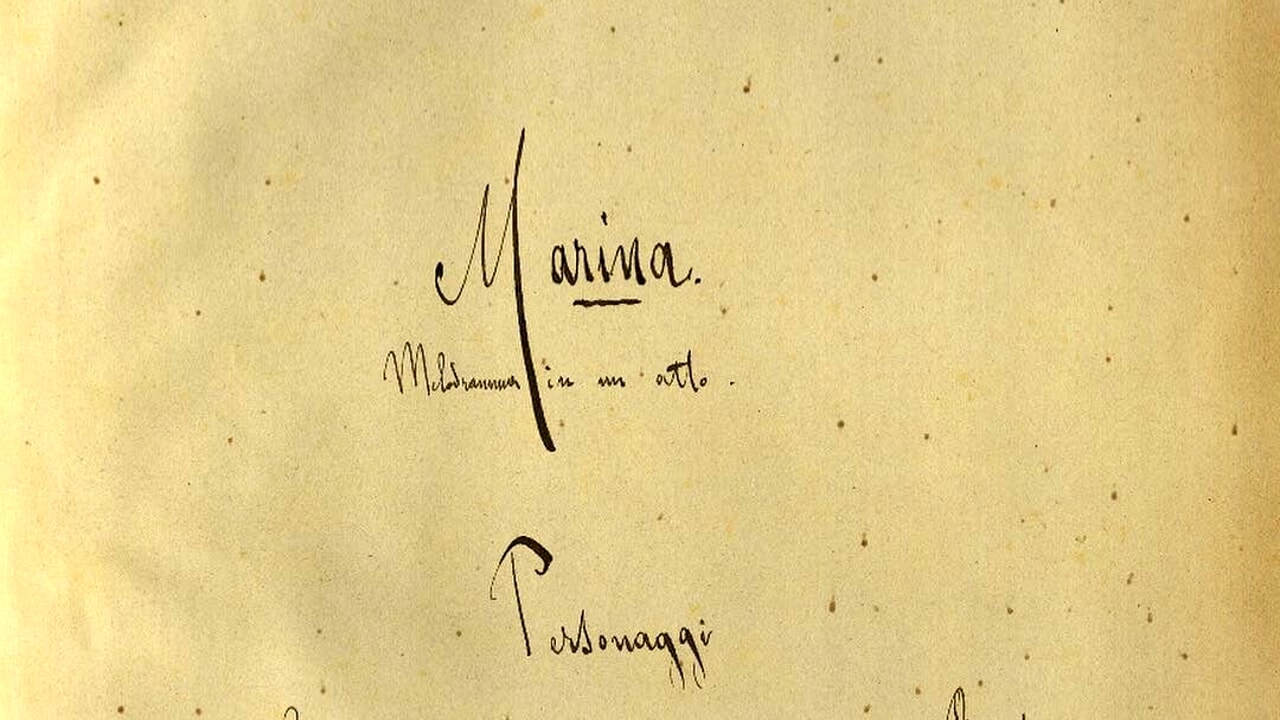 Marina.
Melodramma in un atto.
Personaggi